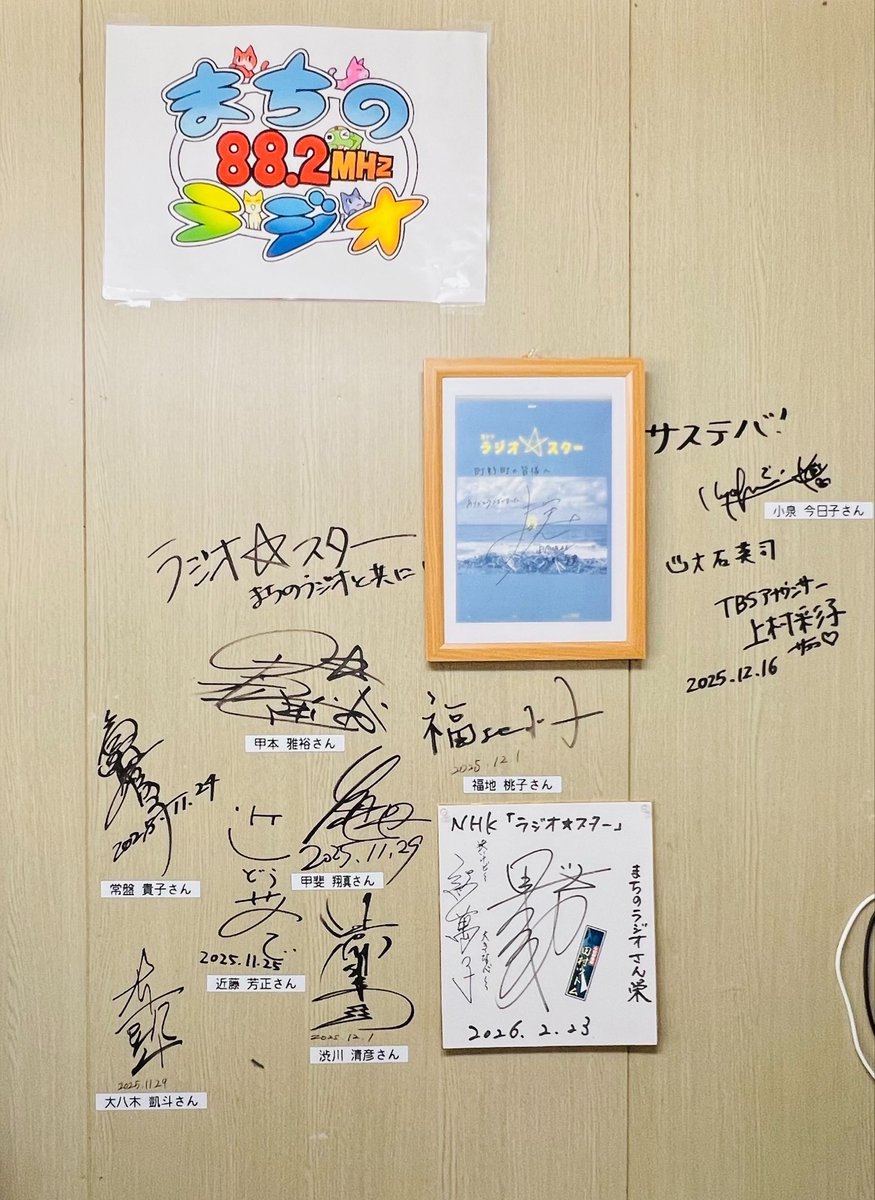 まちの
88.2MHz
ラジオ
ラジオ☆スター
町野町の皆様へ
ありがとうございました
サステバ!
小泉 今日子さん
大石英司
TBSアナウンサー
上村彩子
2025.12.16
ラジオ☆スター
まちのラジオと共に
甲本 雅裕さん
福
2025.12.1
福地 桃子さん
2025.11.29
常盤 貴子さん
2025.11.29
甲斐 翔真さん
近
どう
2025.11.25
近藤 芳正さん
2025.12.1
渋川 清彦さん
2025.11.29
大八木 凱斗さん
NHK「ラジオ☆スター」
まちのラジオさん栄
2026.2.23